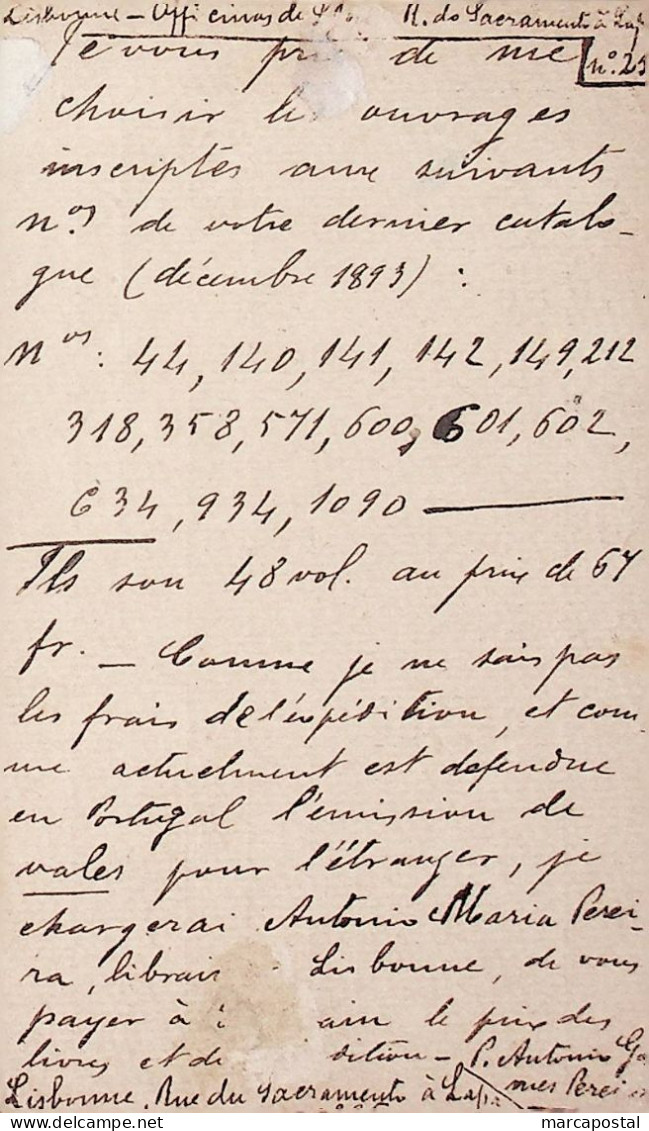 Lisbonne – Officinas de R. do Sacramento à Lapa
Je vous prie de me nº. 25
choisir les ouvrages
inscriptés aux suivants
n.os de votre dernier catalo-
gue (décembre 1893) :
Nos: 44, 140, 141, 142, 149, 212
318, 358, 571, 600, 601, 602,
634, 934, 1090 —
Ils son 48 vol. au prix de 67
fr. — Comme je ne sais pas
les frais de l'éxpédition, et com-
me actuelment est defendue
en Portugal l'émission de
vales pour l'étranger, je
chargerai Antonio Maria Perei-
ra, librair Lisbonne, de vous
payer à ain le prix des
livres et de dition – P. Antonio Go
Lisbonne, Rue du Sacramento à Lapa mes Perei
marcapostal